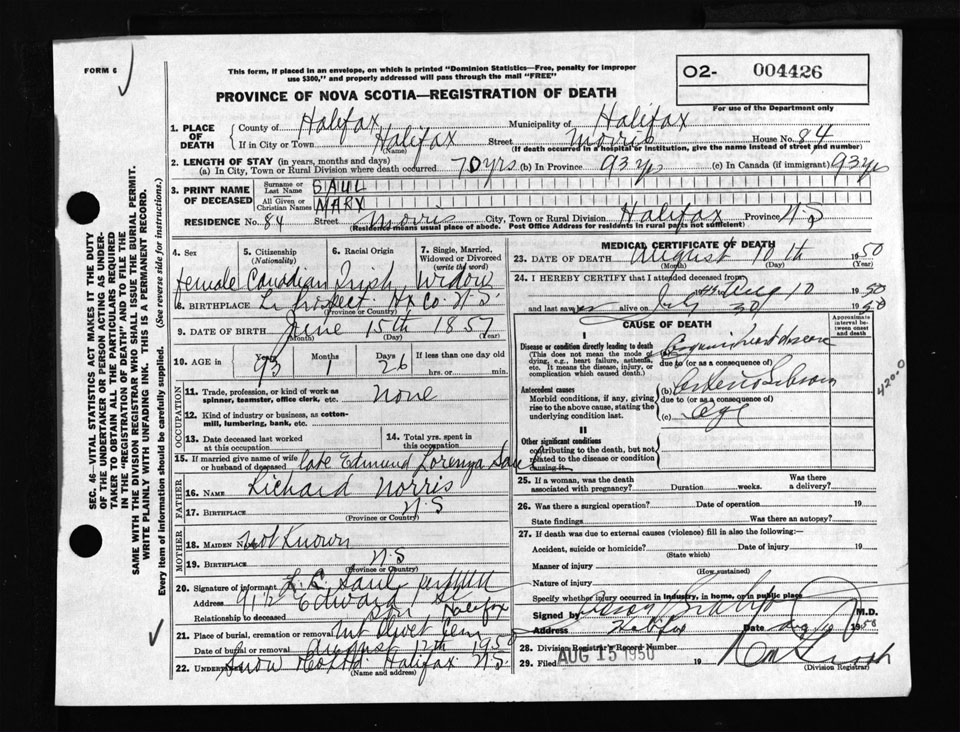 FORM 6
This form, if placed in an envelope, on which is printed "Dominion Statistics—Free, penalty for improper
use $300," and properly addressed will pass through the mail "FREE"
O2- 004426
For use of the Department only
PROVINCE OF NOVA SCOTIA—REGISTRATION OF DEATH
1. PLACE OF DEATH
County of Halifax Municipality of Halifax
If in City or Town Halifax Street Morris House No. 84
(Name) (If death occurred in a hospital or institution, give the name instead of street and number)
2. LENGTH OF STAY (in years, months and days)
(a) In City, Town or Rural Division where death occurred 70 yrs (b) In Province 93 yrs (c) In Canada (if immigrant) 93 yrs
3. PRINT NAME OF DECEASED
Surname or Last Name SAUL
All Given or Christian Names MARY
RESIDENCE No. 84 Street Morris City, Town or Rural Division Halifax Province N.S
(Residence means usual place of abode. Post Office Address for residents in rural parts not sufficient)
4. Sex 5. Citizenship (Nationality) 6. Racial Origin 7. Single, Married, Widowed or Divorced (write the word)
Female Canadian Irish Widow
8. BIRTHPLACE Prospect Hx Co. N.S.
(Province or Country)
9. DATE OF BIRTH June 15th 1857
(Month) (Day) (Year)
10. AGE in Years Months Days If less than one day old
93 1 26 hrs. or min.
OCCUPATION
11. Trade, profession, or kind of work as
spinner, teamster, office clerk, etc. None
12. Kind of industry or business, as cotton-
mill, lumbering, bank, etc.
13. Date deceased last worked
at this occupation
14. Total yrs. spent in
this occupation
15. If married give name of wife
or husband of deceased late Edmund Lorenza Saul
FATHER
16. NAME Richard Norris
17. BIRTHPLACE N.S
(Province or Country)
MOTHER
18. MAIDEN NAME Not Known
19. BIRTHPLACE N.S
(Province or Country)
20. Signature of informant Saul
Address 91½ Edward St
Relationship to deceased Halifax
21. Place of burial, cremation or removal Mt Olivet Cem
Date of burial or removal August 12th 1950
22. UNDERTAKER Snow Co Ltd. Halifax N.S.
(Name and address)
MEDICAL CERTIFICATE OF DEATH
23. DATE OF DEATH August 10th 1950
(Month) (Day) (Year)
24. I HEREBY CERTIFY that I attended deceased from
Aug 10 1950
and last saw alive on July 30 1950
CAUSE OF DEATH
Approximate interval between onset and death
I
Disease or condition directly leading to death
(This does not mean the mode of
dying, e.g., heart failure, asthenia,
etc. It means the disease, injury, or
complication which caused death.)
(a)
due to (or as a consequence of)
Antecedent causes
Morbid conditions, if any, giving
rise to the above cause, stating the
underlying condition last.
(b)
due to (or as a consequence of)
(c) age
4200
II
Other significant conditions
contributing to the death, but not
related to the disease or condition
causing it.
25. If a woman, was the death
associated with pregnancy? Duration weeks. Was there
a delivery?
26. Was there a surgical operation? Date of operation 19
State findings Was there an autopsy?
27. If death was due to external causes (violence) fill in also the following:—
Accident, suicide or homicide? Date of injury 19
(State which)
Manner of injury
(How sustained)
Nature of injury
Specify whether injury occurred in industry, in home, or in public place
Signed by M.D.
Address Halifax Date Aug 10 1950
28. Division Registrar's Record Number
29. Filed AUG 15 1950 19
(Division Registrar)
SEC. 46—VITAL STATISTICS ACT MAKES IT THE DUTY
OF THE UNDERTAKER OR PERSON ACTING AS UNDER-
TAKER TO OBTAIN ALL THE PARTICULARS REQUIRED
IN THE "REGISTRATION OF DEATH" AND TO FILE THE
SAME WITH THE DIVISION REGISTRAR WHO SHALL ISSUE THE BURIAL PERMIT.
WRITE PLAINLY WITH UNFADING INK. THIS IS A PERMANENT RECORD.
Every item of information should be carefully supplied. (See reverse side for instructions.)